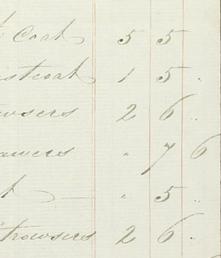 Coat 5 5
istcoat 1 5 .
owsers 2 6 ..
awers . 7 6
t — . 5 ..
trowsers 2 6 .